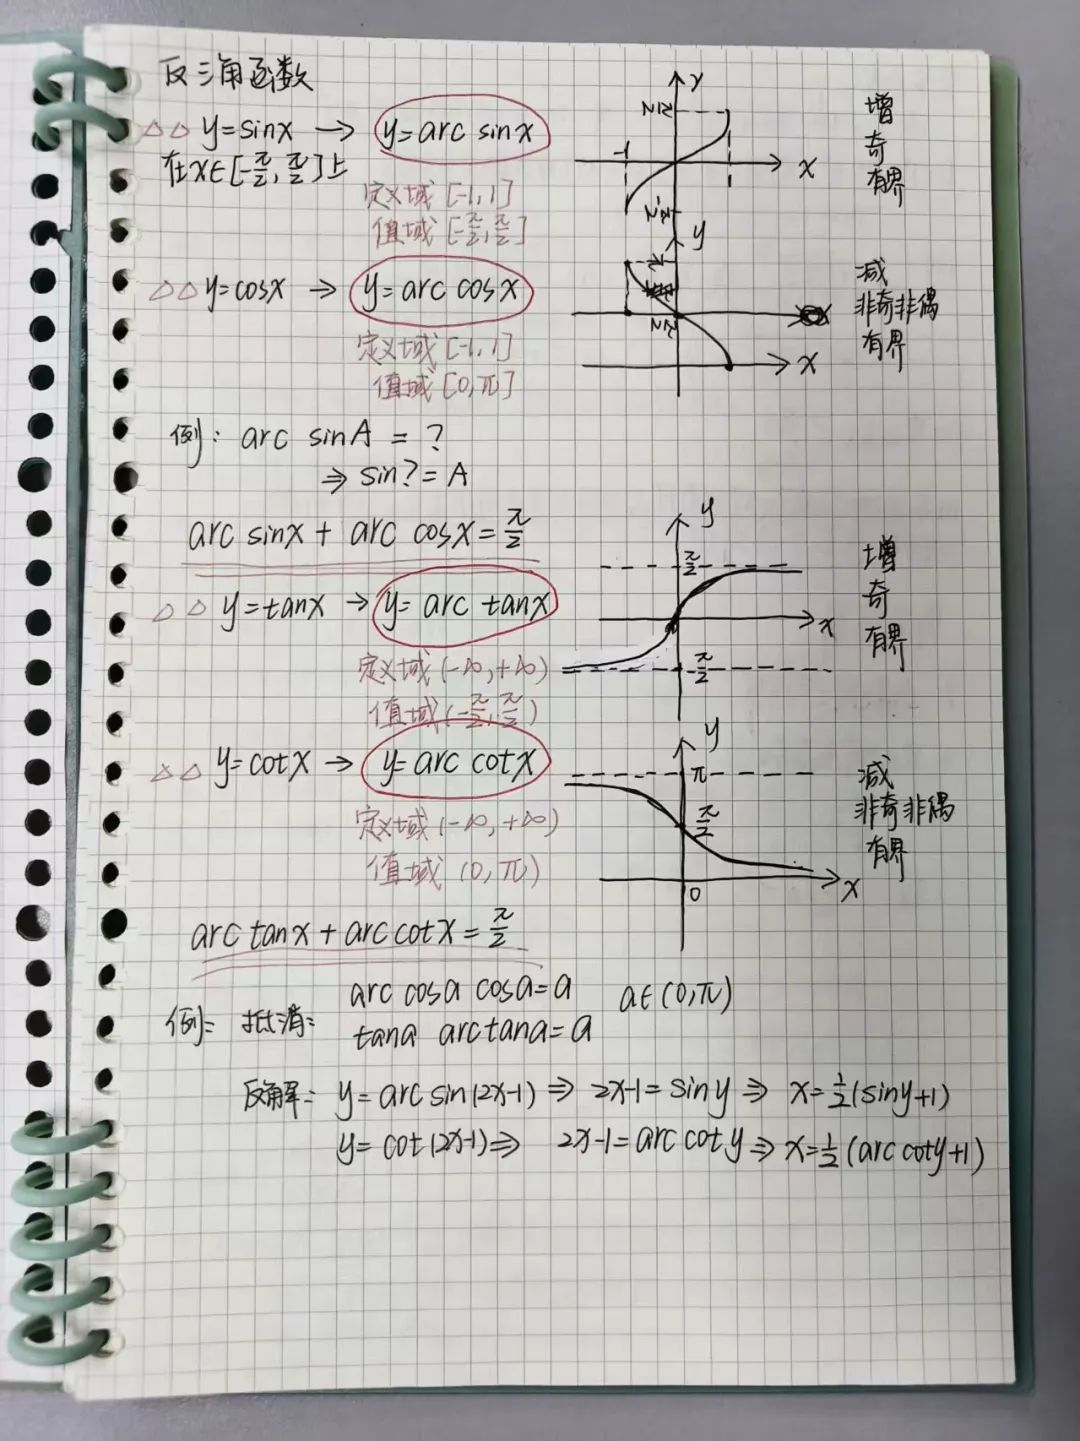 反三角函数
△△ y=sinx → y=arc sinx
在x∈[-π/2, π/2]上
定义域 [-1, 1]
值域 [-π/2, π/2]
y
π/2
-1
x
-π/2
增
奇
有界
△△ y=cosx → y=arc cosx
定义域 [-1, 1]
值域 [0, π]
y
π
π/2
x
减
非奇非偶
有界
例: arc sinA = ?
⇒ sin? = A
arc sinx + arc cosx = π/2
△△ y=tanx → y= arc tanx
定义域 (-∞, +∞)
值域 (-π/2, π/2)
y
π/2
x
π/2
增
奇
有界
△△ y=cotx → y= arc cotx
定义域 (-∞, +∞)
值域 (0, π)
y
π
π/2
0
x
减
非奇非偶
有界
arc tanx + arc cotx = π/2
例: 抵消: arc cosa cosa = a a∈(0, π)
tana arctana = a
反解: y= arc sin(2x-1) ⇒ 2x-1 = siny ⇒ x=½(siny+1)
y= cot(2x-1) ⇒ 2x-1 = arc coty ⇒ x=½(arc coty+1)